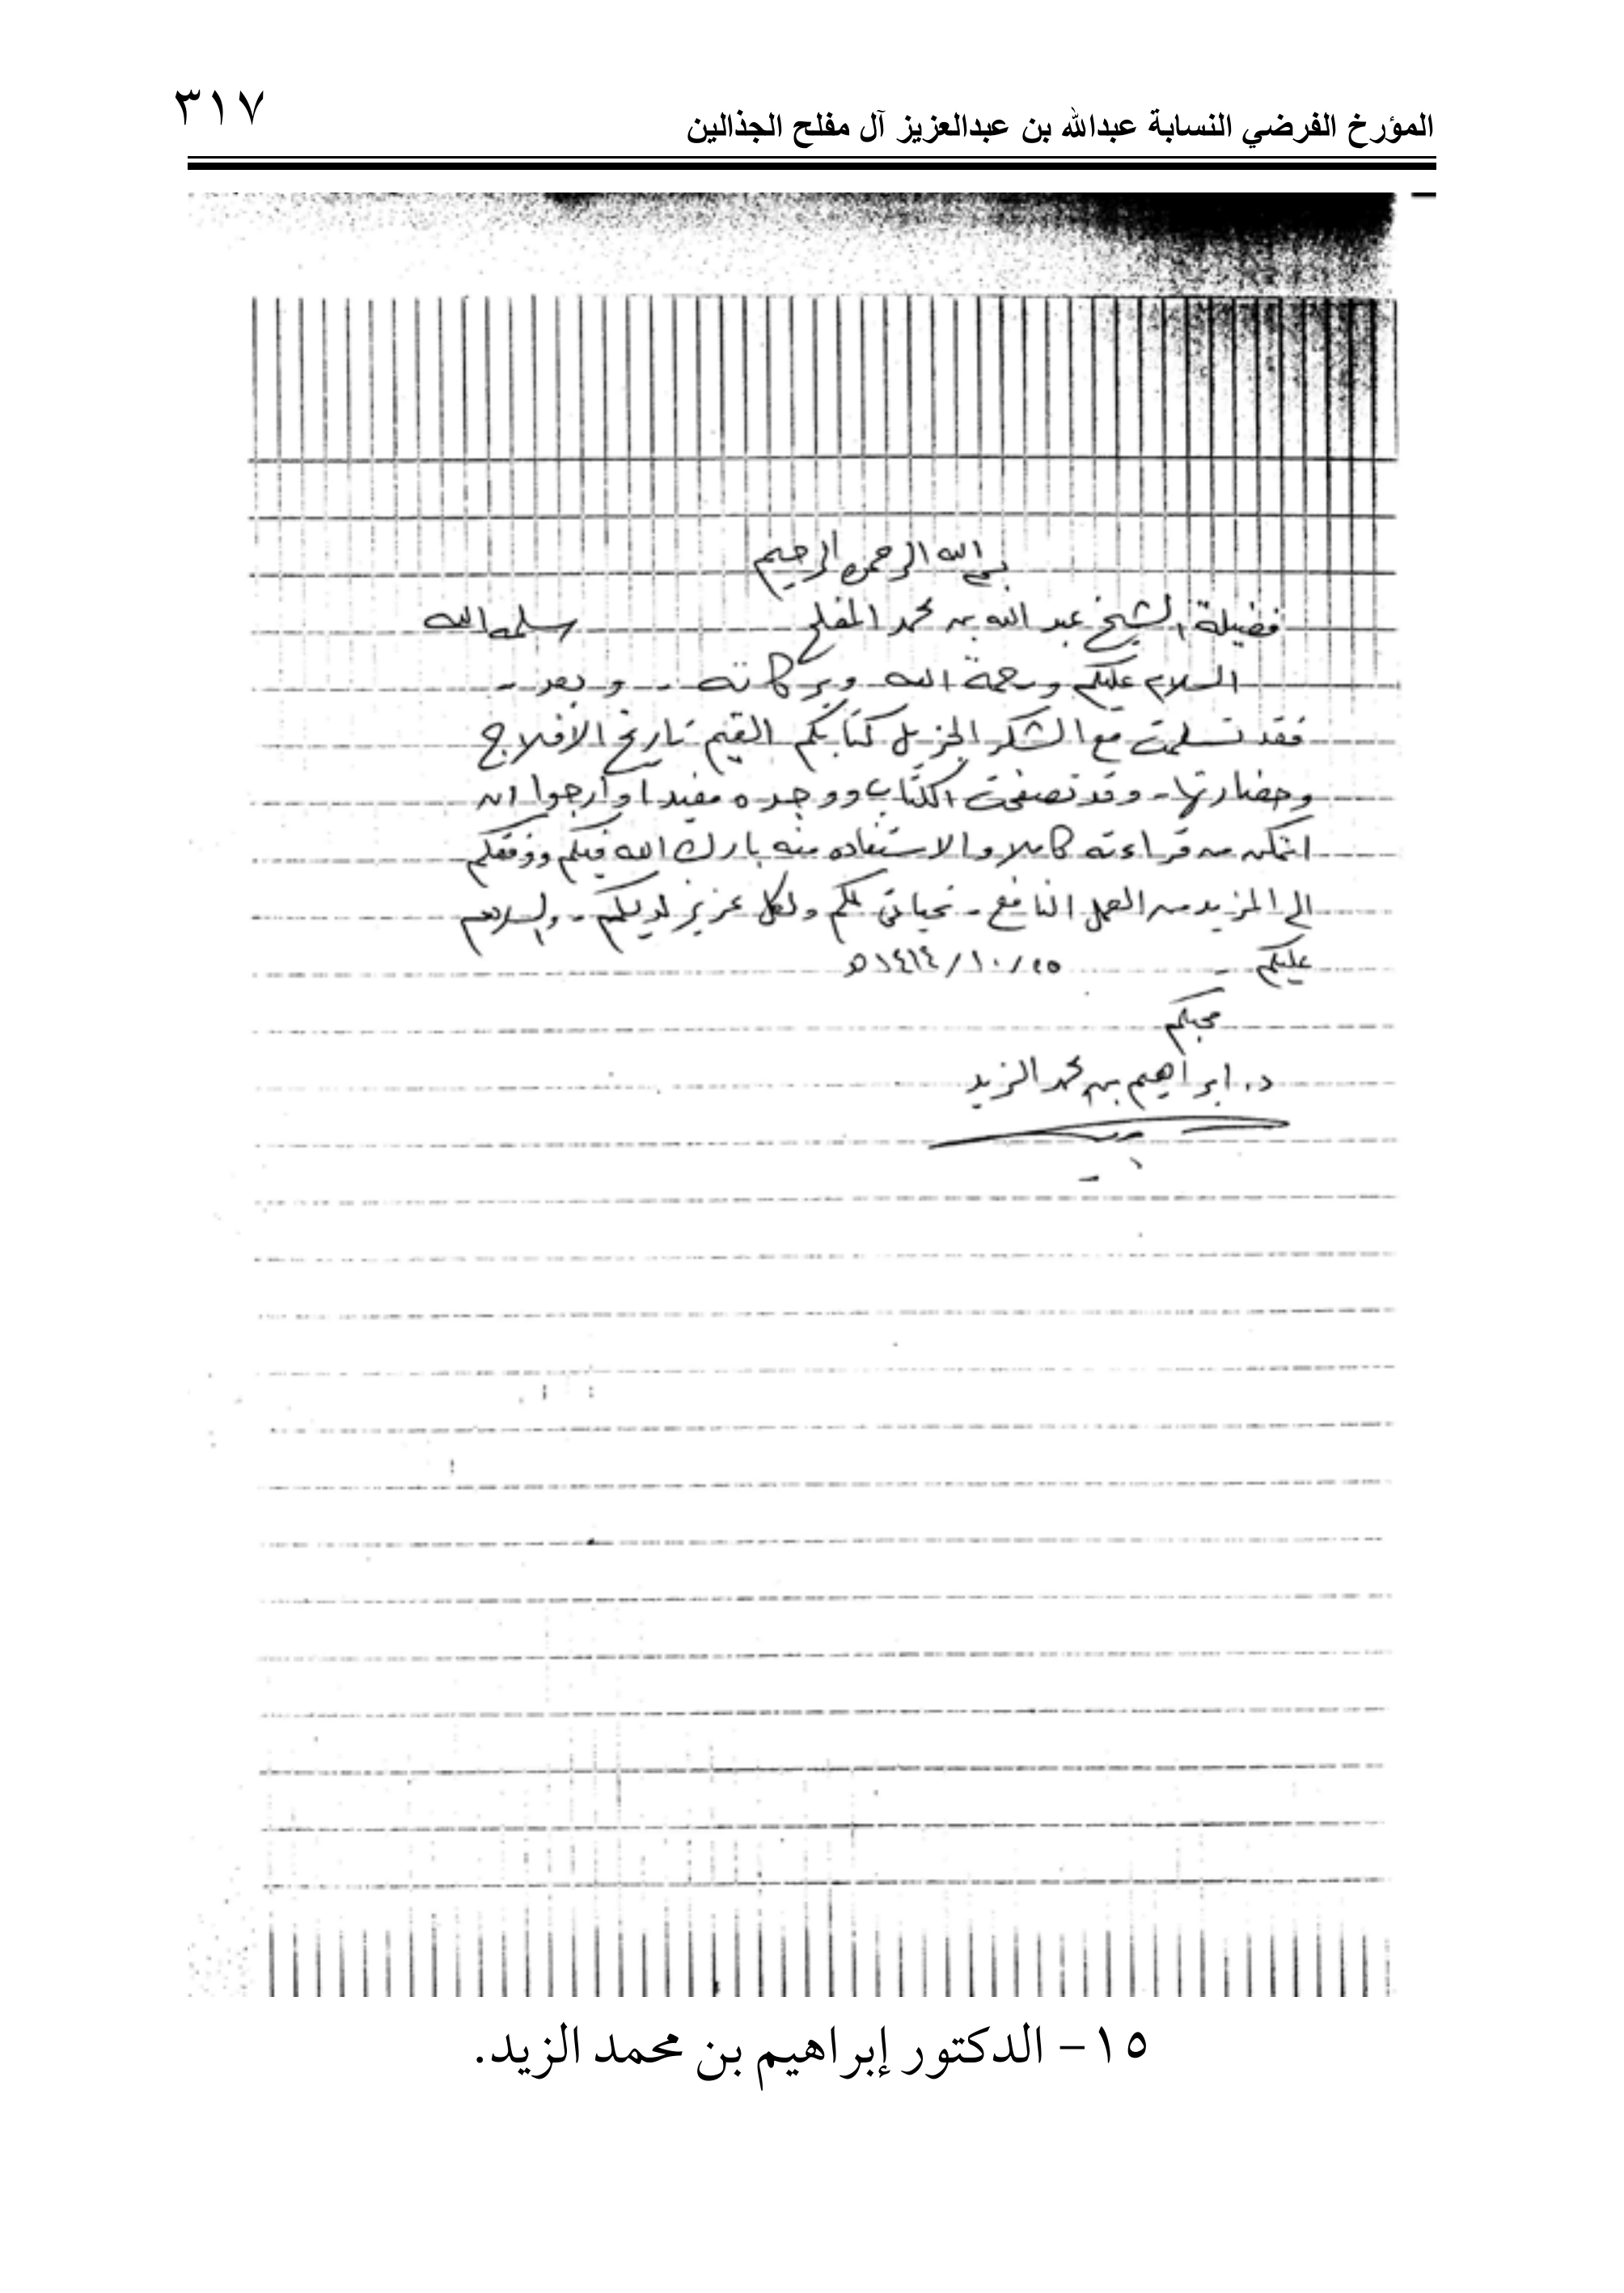 المؤرخ الفرضي النسابة عبدالله بن عبدالعزيز آل مفلح الجذالين
٣١٧
بسم الله الرحمن الرحيم
فضيلة الشيخ عبد الله بن محمد المفلح سلمه الله
السلام عليكم ورحمة الله وبركاته - وبعد -
فقد تسلمت مع الشكر الجزيل كتابكم القيم تاريخ الافلاج
وحضارتها - وقد تصفحت الكتاب ووجده مفيدا وأرجوا ان
اتمكن من قراءته كاملا والاستفاده منه بارك الله فيكم ووفقكم
الى المزيد من العمل النافع - تحياتي لكم ولكل عزيز لديكم - والسلام
عليكم - ١٤١٤/١٠/٢٥ه
محبكم
د. ابراهيم بن محمد الزيد
١٥- الدكتور إبراهيم بن محمد الزيد.